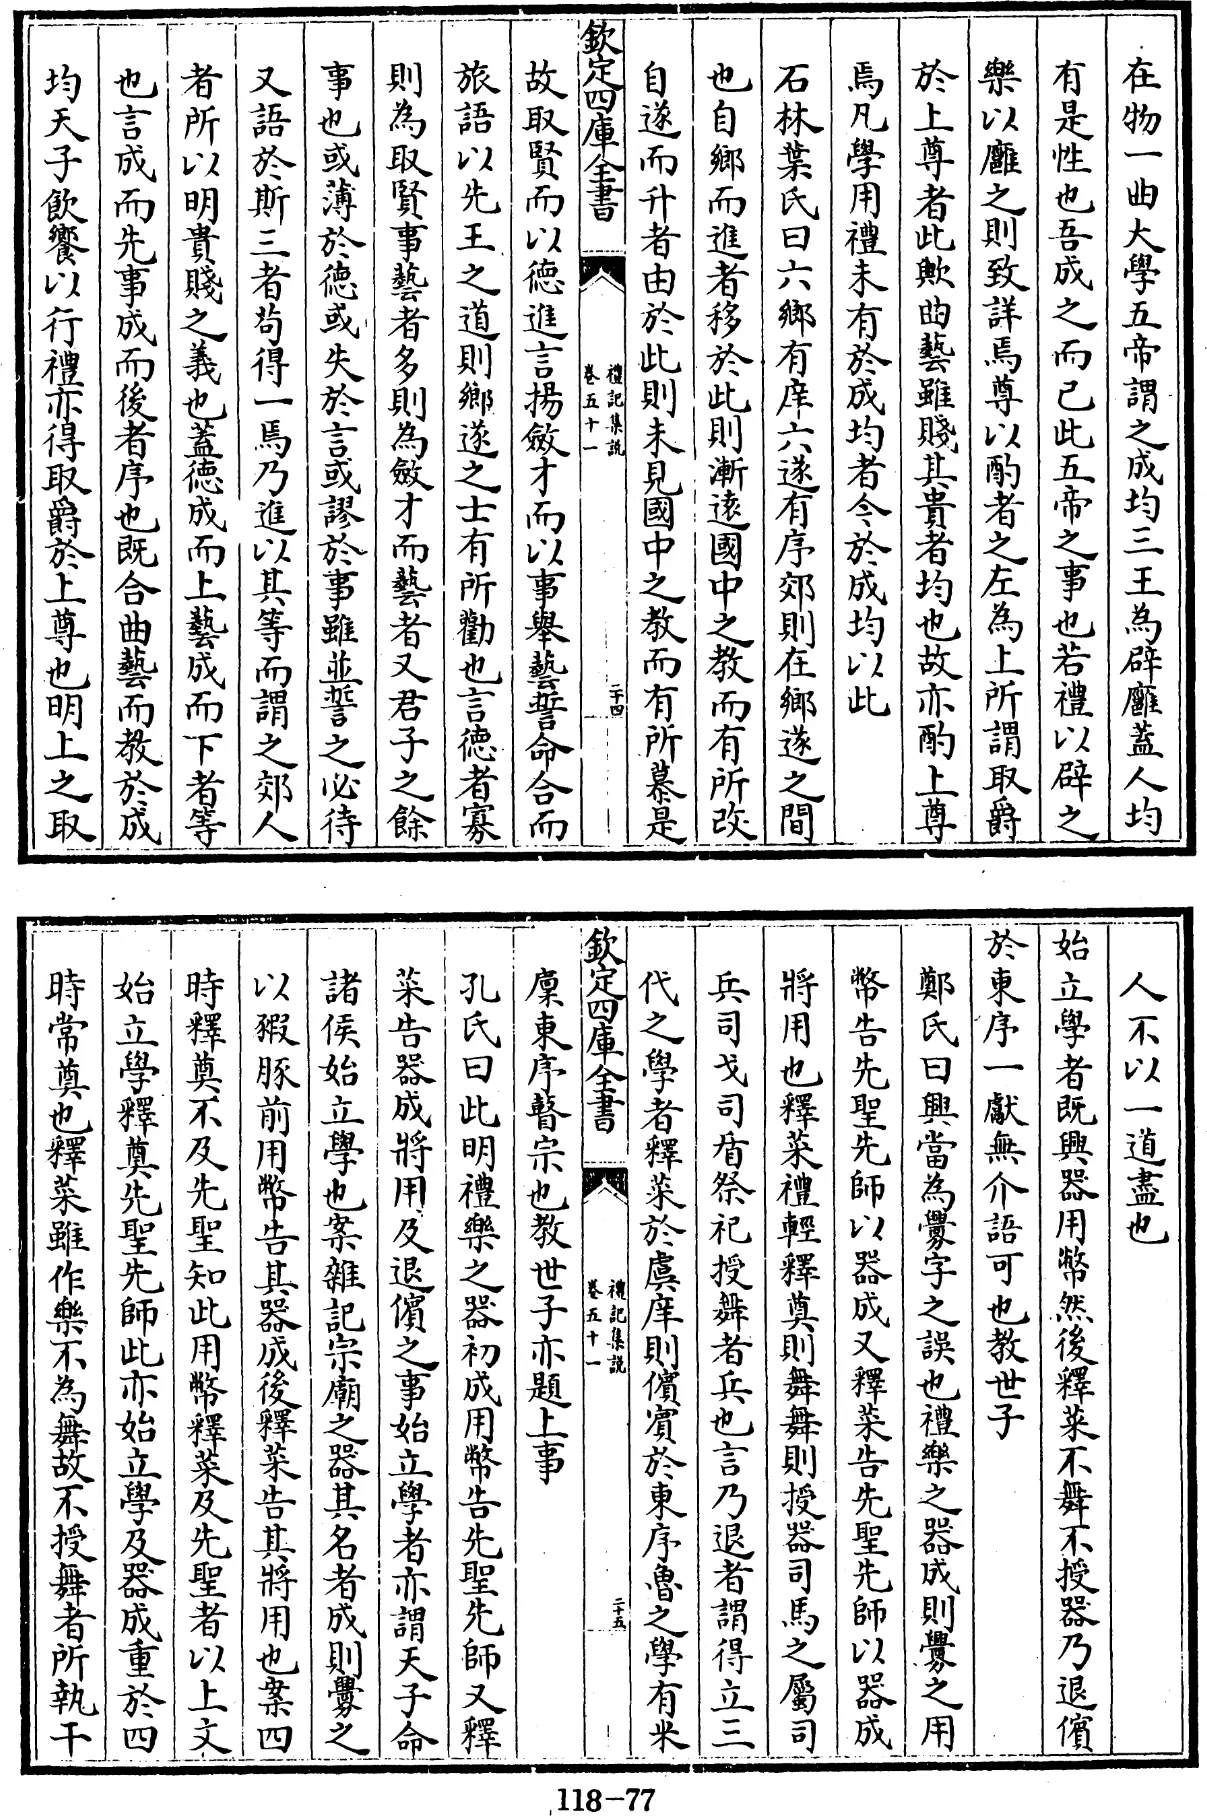 在物一曲大學五帝謂之成均三王為辟廱蓋人均
有是性也吾成之而已此五帝之事也若禮以辟之
樂以廱之則致詳焉尊以酌者之左為上所謂取爵
於上尊者此歟曲藝雖賤其貴者均也故亦酌上尊
焉凡學用禮未有於成均者今於成均以此
石林葉氏曰六鄉有庠六遂有序郊則在鄉遂之間
也自鄉而進者移於此則漸遠國中之教而有所改
自遂而升者由於此則未見國中之教而有所慕是
欽定四庫全書
禮記集說
卷五十一
二十四
故取賢而以德進言揚斂才而以事舉藝誓命合而
旅語以先王之道則鄉遂之士有所勸也言德者寡
則為取賢事藝者多則為斂才而藝者又君子之餘
事也或薄於德或失於言或謬於事雖並誓之必待
又語於斯三者苟得一焉乃進以其等而謂之郊人
者所以明貴賤之義也蓋德成而上藝成而下者等
也言成而先事成而後者序也既合曲藝而教於成
均天子飲饗以行禮亦得取爵於上尊也明上之取
人不以一道盡也
始立學者既興器用幣然後釋菜不舞不授器乃退儐
於東序一獻無介語可也教世子
鄭氏曰興當為釁字之誤也禮樂之器成則釁之用
幣告先聖先師以器成又釋菜告先聖先師以器成
將用也釋菜禮輕釋奠則舞舞則授器司馬之屬司
兵司戈司盾祭祀授舞者兵也言乃退者謂得立三
代之學者釋菜於虞庠則儐賓於東序魯之學有米
欽定四庫全書
禮記集說
卷五十一
二十五
廩東序瞽宗也教世子亦題上事
孔氏曰此明禮樂之器初成用幣告先聖先師又釋
菜告器成將用及退儐之事始立學者亦謂天子命
諸侯始立學也案雜記宗廟之器其名者成則釁之
以豭豚前用幣告其器成後釋菜告其將用也案四
時釋奠不及先聖知此用幣釋菜及先聖者以上文
始立學釋奠先聖先師此亦始立學及器成重於四
時常奠也釋菜雖作樂不為舞故不授舞者所執干
118-77